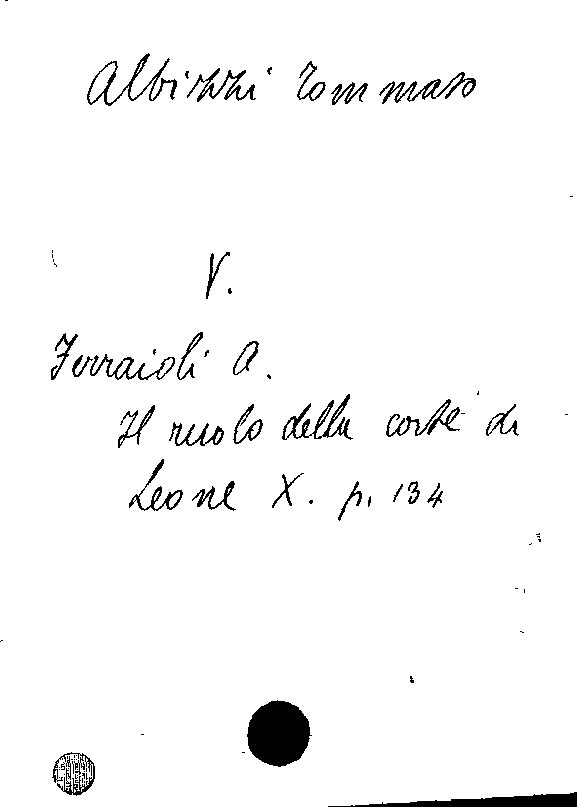 Albizzi Tommaso
V.
Ferraioli A.
Il ruolo della corte di
Leone X. p. 134